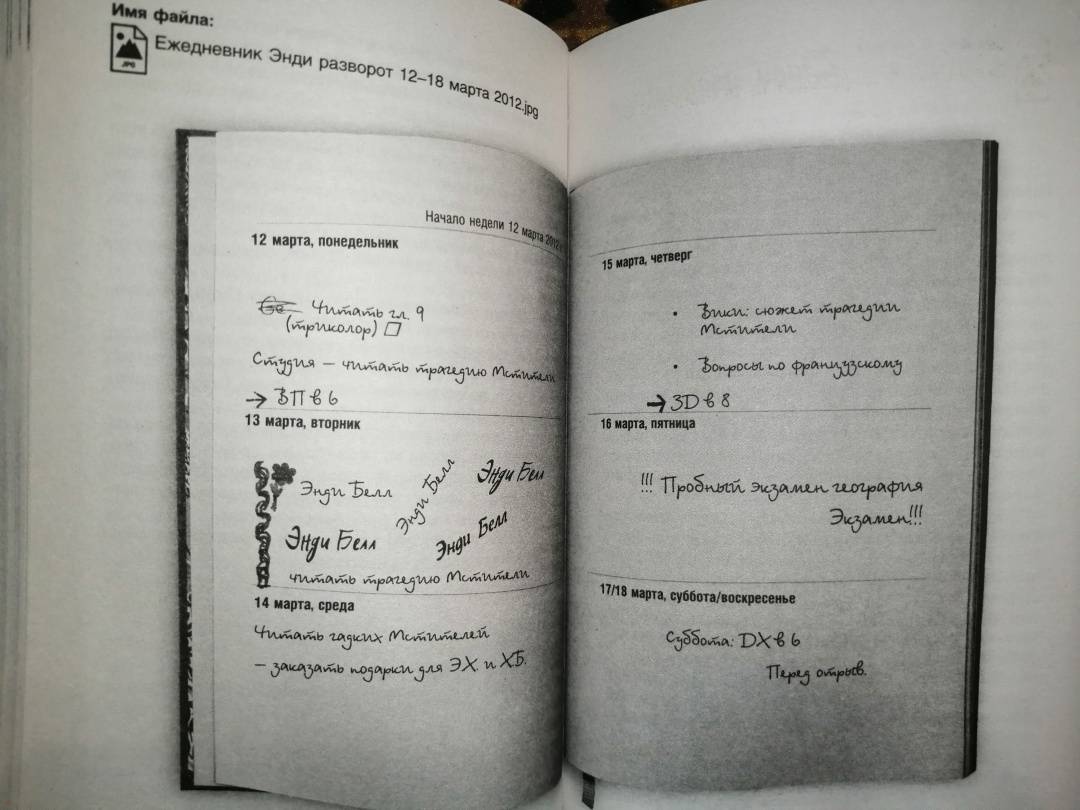 Имя файла:
JPG
Ежедневник Энди разворот 12–18 марта 2012.jpg
Начало недели 12 марта 2012
12 марта, понедельник
Читать гл. 9
(триколор)
Студия – читать трагедию Мстители
→ ВП в 6
13 марта, вторник
Энди Белл
Энди Белл
Энди Белл
Энди Белл
Энди Белл
читать трагедию Мстители
14 марта, среда
Читать гадких Мстителей
– заказать подарки для ЭХ. и ХБ.
15 марта, четверг
• Вики: сюжет трагедии
Мстители
• Вопросы по французскому
→ ЗD в 8
16 марта, пятница
!!! Пробный экзамен география
Экзамен!!!
17/18 марта, суббота/воскресенье
Суббота: DX в 6
Перед отрыв.